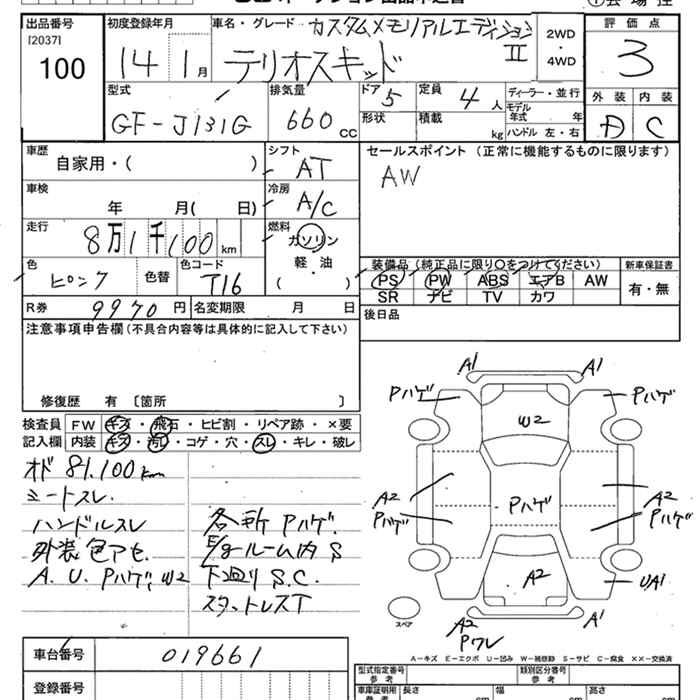 出品番号
[2037]
100
初度登録年月
14年1月
車名・グレード
カスタムメモリアルエディションII
テリオスキッド
2WD
・
4WD
評価点
3
外装 内装
D C
型式
GF-J131G
排気量
660 cc
ドア 5
定員 4 人
形状
積載 kg
ディーラー・並行
モデル年式 年
ハンドル 左・右
車歴
自家用・( )
シフト
AT
セールスポイント (正常に機能するものに限ります)
AW
車検
年 月( 日)
冷房
A/C
走行
8万1千100 km
燃料
ガソリン
軽・油
( )
色
ピンク
色替
色コード
T16
装備品 (純正品に限り○をつけてください)
PS PW ABS エアB AW
SR ナビ TV カワ
新車保証書
有・無
R券 9970 円
名変期限 月 日
後日品
注意事項申告欄 (不具合内容等は具体的に記入して下さい)
修復歴 有 〔箇所 〕
検査員記入欄
FW キズ・飛石・ヒビ割・リペア跡・×要
内装 キズ・汚れ・コゲ・穴・スレ・キレ・破レ
オド 81,100km
シートスレ.
ハンドルスレ
外装色アセ.
A.U.Pハゲ,W2
各所Pハゲ.
E/gルーム内S
下廻りS.C.
スタットレスT
A1 A1
Pハゲ Pハゲ
W2
A2 Pハゲ
Pハゲ
A2 Pハゲ
A2
UA1
A2 Pワレ
A1
スペア
A-キズ E-エクボ U-凹み W-補修跡 S-サビ C-腐食 XX-交換済
車台番号 019661
登録番号
型式指定番号 参考
類別区分番号 参考
車庫証明用 参考
長さ cm
幅 cm
高さ cm